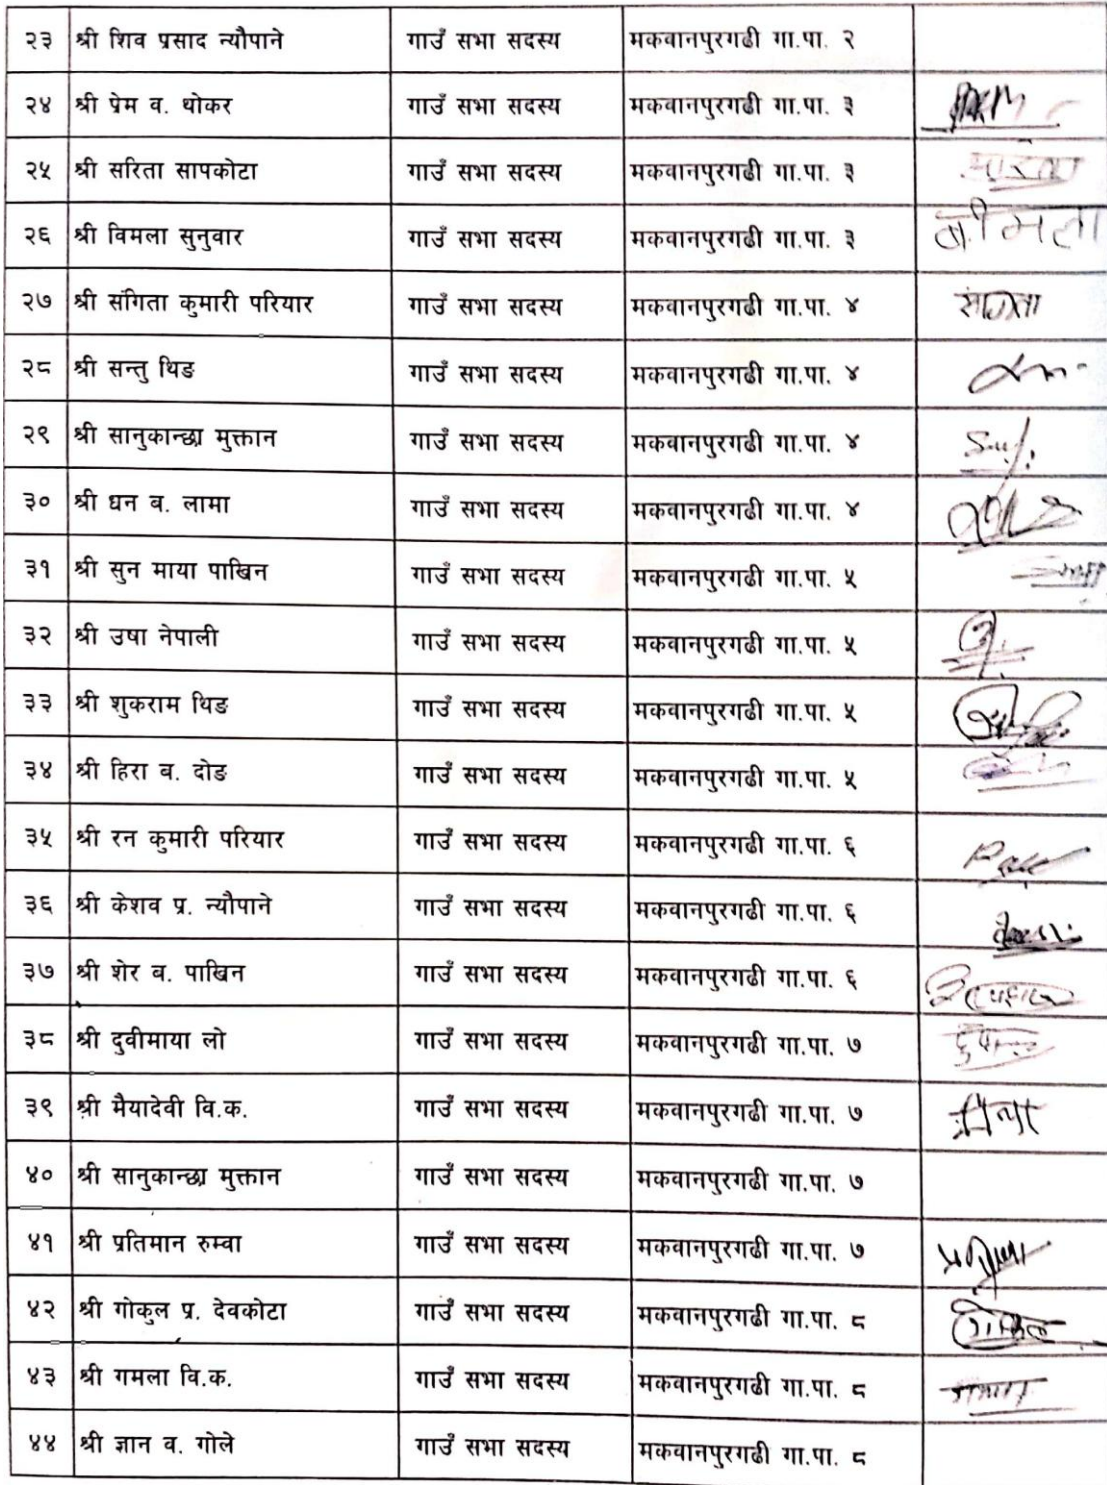 २३ श्री शिव प्रसाद न्यौपाने गाउँ सभा सदस्य मकवानपुरगढी गा.पा. २
२४ श्री प्रेम व. थोकर गाउँ सभा सदस्य मकवानपुरगढी गा.पा. ३
२५ श्री सरिता सापकोटा गाउँ सभा सदस्य मकवानपुरगढी गा.पा. ३
२६ श्री विमला सुनुवार गाउँ सभा सदस्य मकवानपुरगढी गा.पा. ३ बीमला
२७ श्री संगिता कुमारी परियार गाउँ सभा सदस्य मकवानपुरगढी गा.पा. ४
२८ श्री सन्तु थिङ गाउँ सभा सदस्य मकवानपुरगढी गा.पा. ४
२९ श्री सानुकान्छा मुक्तान गाउँ सभा सदस्य मकवानपुरगढी गा.पा. ४
३० श्री धन ब. लामा गाउँ सभा सदस्य मकवानपुरगढी गा.पा. ४
३१ श्री सुन माया पाखिन गाउँ सभा सदस्य मकवानपुरगढी गा.पा. ५
३२ श्री उषा नेपाली गाउँ सभा सदस्य मकवानपुरगढी गा.पा. ५
३३ श्री शुकराम थिङ गाउँ सभा सदस्य मकवानपुरगढी गा.पा. ५
३४ श्री हिरा ब. दोङ गाउँ सभा सदस्य मकवानपुरगढी गा.पा. ५
३५ श्री रन कुमारी परियार गाउँ सभा सदस्य मकवानपुरगढी गा.पा. ६
३६ श्री केशव प्र. न्यौपाने गाउँ सभा सदस्य मकवानपुरगढी गा.पा. ६
३७ श्री शेर ब. पाखिन गाउँ सभा सदस्य मकवानपुरगढी गा.पा. ६
३८ श्री दुवीमाया लो गाउँ सभा सदस्य मकवानपुरगढी गा.पा. ७
३९ श्री मैयादेवी वि.क. गाउँ सभा सदस्य मकवानपुरगढी गा.पा. ७
४० श्री सानुकान्छा मुक्तान गाउँ सभा सदस्य मकवानपुरगढी गा.पा. ७
४१ श्री प्रतिमान रुम्वा गाउँ सभा सदस्य मकवानपुरगढी गा.पा. ७
४२ श्री गोकुल प्र. देवकोटा गाउँ सभा सदस्य मकवानपुरगढी गा.पा. ८
४३ श्री गमला वि.क. गाउँ सभा सदस्य मकवानपुरगढी गा.पा. ८
४४ श्री ज्ञान व. गोले गाउँ सभा सदस्य मकवानपुरगढी गा.पा. ८